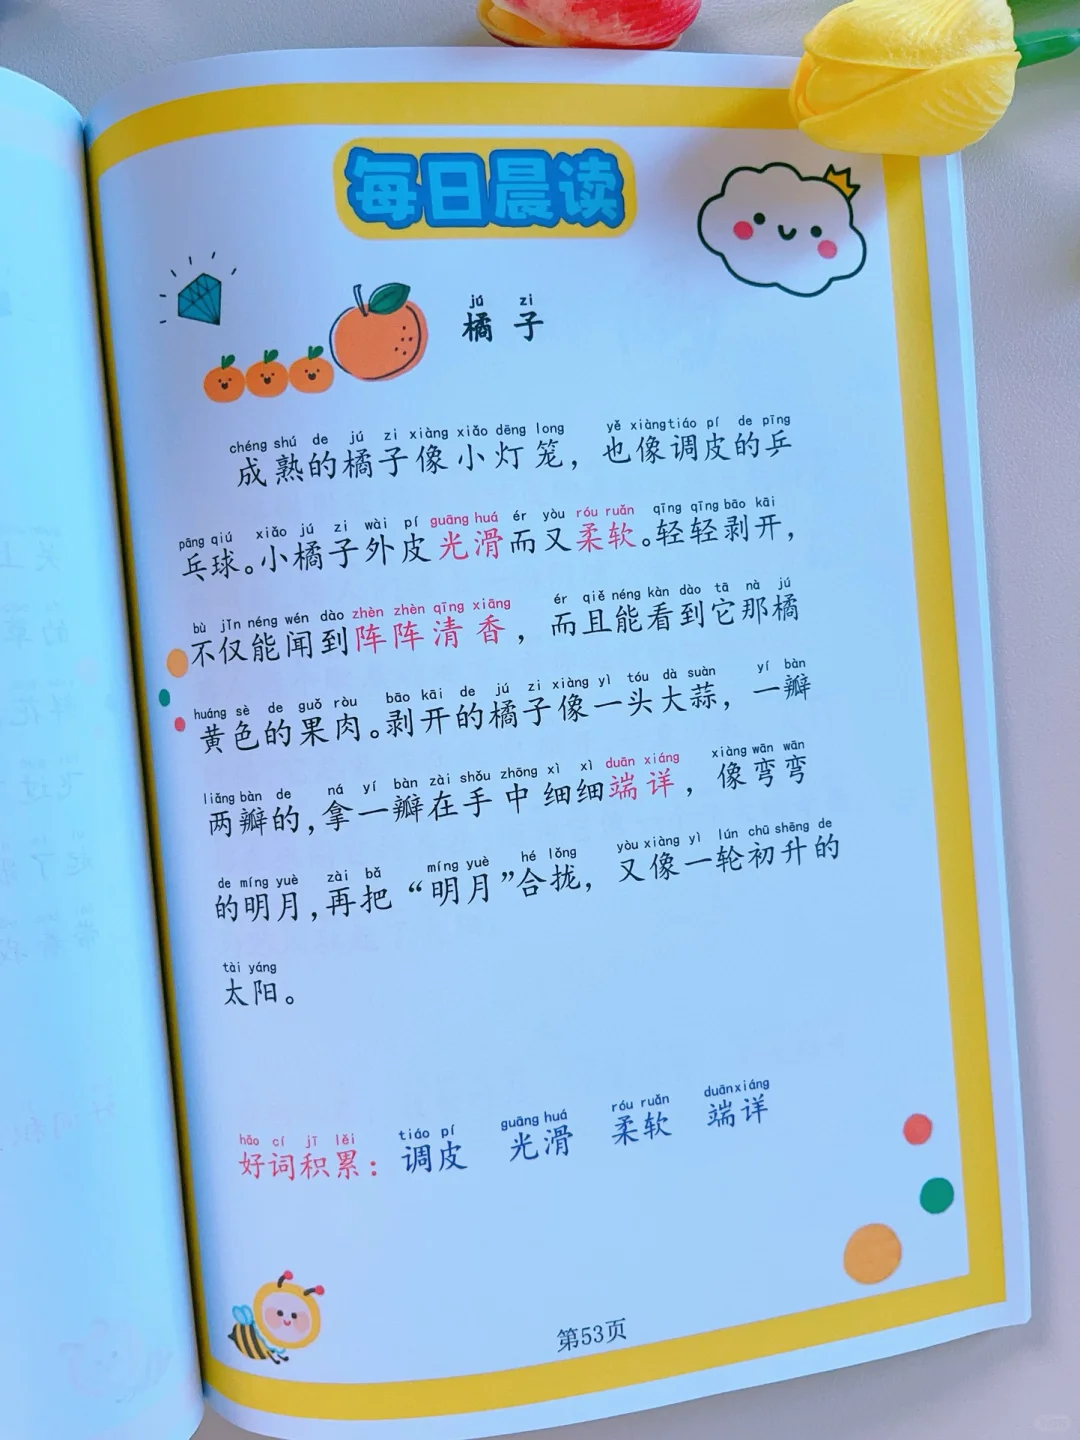 每日晨读
jú zi
橘子
chéng shú de jú zi xiàng xiǎo dēng long yě xiàng tiáo pí de pīng
成熟的橘子像小灯笼，也像调皮的乒
pāng qiú xiǎo jú zi wài pí guāng huá ér yòu róu ruǎn qīng qīng bāo kāi
乓球。小橘子外皮光滑而又柔软。轻轻剥开，
bù jǐn néng wén dào zhèn zhèn qīng xiāng ér qiě néng kàn dào tā nà jú
不仅能闻到阵阵清香，而且能看到它那橘
huáng sè de guǒ ròu bāo kāi de jú zi xiàng yì tóu dà suàn yí bàn
黄色的果肉。剥开的橘子像一头大蒜，一瓣
liǎng bàn de ná yí bàn zài shǒu zhōng xì xì duān xiáng xiàng wān wān
两瓣的，拿一瓣在手中细细端详，像弯弯
de míng yuè zài bǎ míng yuè hé lǒng yòu xiàng yì lún chū shēng de
的明月，再把“明月”合拢，又像一轮初升的
tài yáng
太阳。
hǎo cí jī lěi tiáo pí guāng huá róu ruǎn duān xiáng
好词积累：调皮 光滑 柔软 端详
第53页